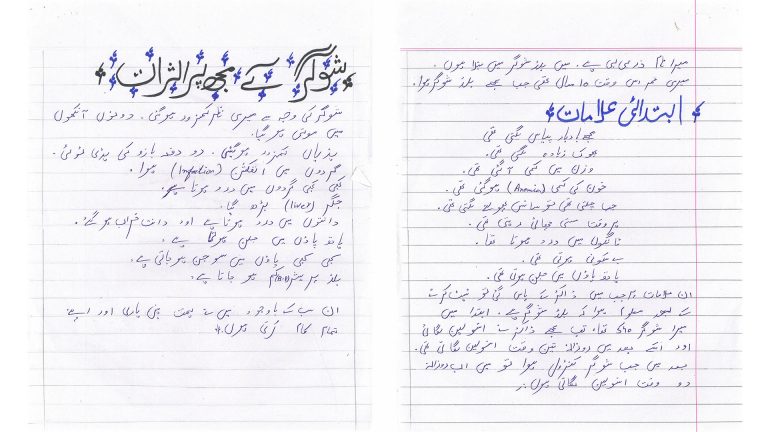 میرا نام در بی بی ہے۔ میں بلڈ شوگر میں مبتلا ہوں۔
میری عمر اس وقت 15 سال تھی جب مجھے بلڈ شوگر ہوا۔
ابتدائی علامات
مجھے بار بار پیاس لگتی تھی
بھوک زیادہ لگتی تھی۔
وزن میں کمی آ گئی تھی
خون کی کمی (Anemia) ہو گئی تھی۔
جب چلتی تھی تو سانس پھولنے لگتی تھی۔
ہر وقت سستی چھائی رہتی تھی۔
ٹانگوں میں درد ہوتا تھا۔
بے سکونی ہوتی تھی۔
ہاتھ پاؤں میں جلن ہوتی تھی۔
ان علامات پر جب میں ڈاکٹر کے پاس گئی تو ٹیسٹ کرنے
کے بعد معلوم ہوا کہ بلڈ شوگر ہے۔ ابتدا میں
میرا شوگر 510 تھا۔ تب مجھے ڈاکٹر نے انسولین لگائی
اور اسکے بعد میں روزانہ تین وقت انسولین لگاتی تھی۔
بعد میں جب شوگر کنٹرول ہوا تو میں اب روزانہ
دو وقت انسولین لگاتی ہوں۔
شوگر کے مجھ پر اثرات
شوگر کی وجہ سے میری نظر کمزور ہو گئی۔ دونوں آنکھوں
میں موتیا ہو گیا۔
ہڈیاں کمزور ہو گئیں۔ دو دفعہ بازو کی ہڈی ٹوٹی۔
گردوں میں انفکشن (Infection) ہوا۔
کبھی کبھی گردوں میں درد ہوتا ہے۔
جگر (liver) بڑھ گیا۔
دانتوں میں درد ہوتا ہے اور دانت خراب ہو گئے۔
ہاتھ پاؤں میں جلن ہوتا ہے۔
کبھی کبھی پاؤں میں سوجن ہو جاتی ہے۔
بلڈ پریشر کم ہو جاتا ہے۔
ان سب کے باوجود میں نے ہمت نہیں ہاری اور اپنے
تمام کام کرتی ہوں۔